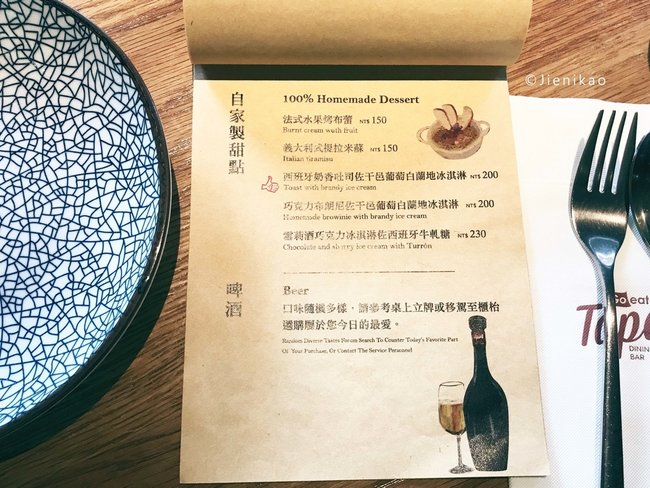 ©Jienikao
自家製甜點
100% Homemade Dessert
法式水果烤布蕾 NT$ 150
Burnt cream wuth fruit
義大利式提拉米蘇 NT$ 150
Italian tiramisu
西班牙奶香吐司佐干邑葡萄白蘭地冰淇淋 NT$ 200
Toast with brandy ice cream
巧克力布朗尼佐干邑葡萄白蘭地冰淇淋 NT$ 200
Homemade brownie with brandy ice cream
雪莉酒巧克力冰淇淋佐西班牙牛軋糖 NT$ 230
Chocolate and sherry ice cream with Turrón
啤酒
Beer
口味隨機多樣，請參考桌上立牌或移駕至櫃枱
選購屬於您今日的最愛。
Random Diverse Tastes Forum Search To Counter Today's Favorite Part
Of Your Purchase, Or Contact The Service Personnel
Go eat
Tapa
DININ
BAR